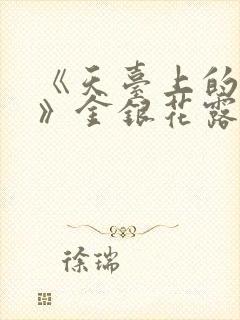 《天臺上的
》金銀花露
徐瑞